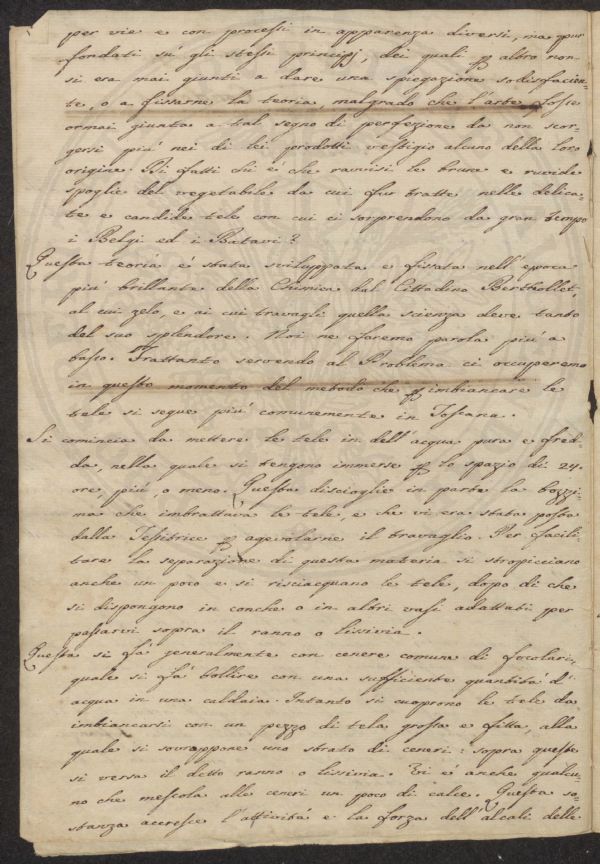 per vie e con processi in apparenza diversi, ma pur
fondati sù gli stessi principj, dei quali p altro non
si era mai giunti a dare una spiegazione sodisfacien-
te, o a fissarne la teoria, malgrado che l'arte fosse
ormai giunta a tal segno di perfezione da non scor-
gersi più nei di lei prodotti vestigio alcuno della loro
origine. Di fatti chi è che ravvisi le brune e ruvide
spoglie del vegetabile da cui fur tratte nelle delica-
te e candide tele con cui ci sorprendono da gran tempo
i Belgi ed i Batavi?
Questa teoria è stata sviluppata e fissata nell'epoca
più brillante della Chimica dal Cittadino Berthollet,
al cui zelo, e ai cui travagli quella scienza deve tanto
del suo splendore. Noi ne faremo parola più a
basso. Trattanto servendo al Problema ci occuperemo
in questo momento del metodo che p imbiancare le
tele si segue più comunemente in Toscana.
Si comincia da mettere le tele in dell'acqua pura e fred-
da, nella quale si tengono immerse p lo spazio di 24.
ore, più, o meno. Questa discioglie in parte la bozzi-
ma che imbrattava le tele, e che vi era stata posta
dalla Tessitrice p agevolarne il travaglio. Per facili-
tare la separazione di questa materia si stropicciano
anche un poco e si risciacquano le tele, dopo di che
si dispongono in conche o in altri vasi adattati per
passarvi sopra il ranno o lissivia.
Questa si fà generalmente con cenere comune di focolari,
quale si fà bollire con una sufficiente quantità d'
acqua in una caldaia. Intanto si cuoprono le tele da
imbiancarsi con un pezzo di tela grossa e fitta, alla
quale si sovrappone uno strato di ceneri: sopra queste
si versa il detto ranno o lissivia. Vi è anche qualcu-
no che mescola alle ceneri un poco di calce. Questa so-
stanza accresce l'attività e la forza dell'alcali delle